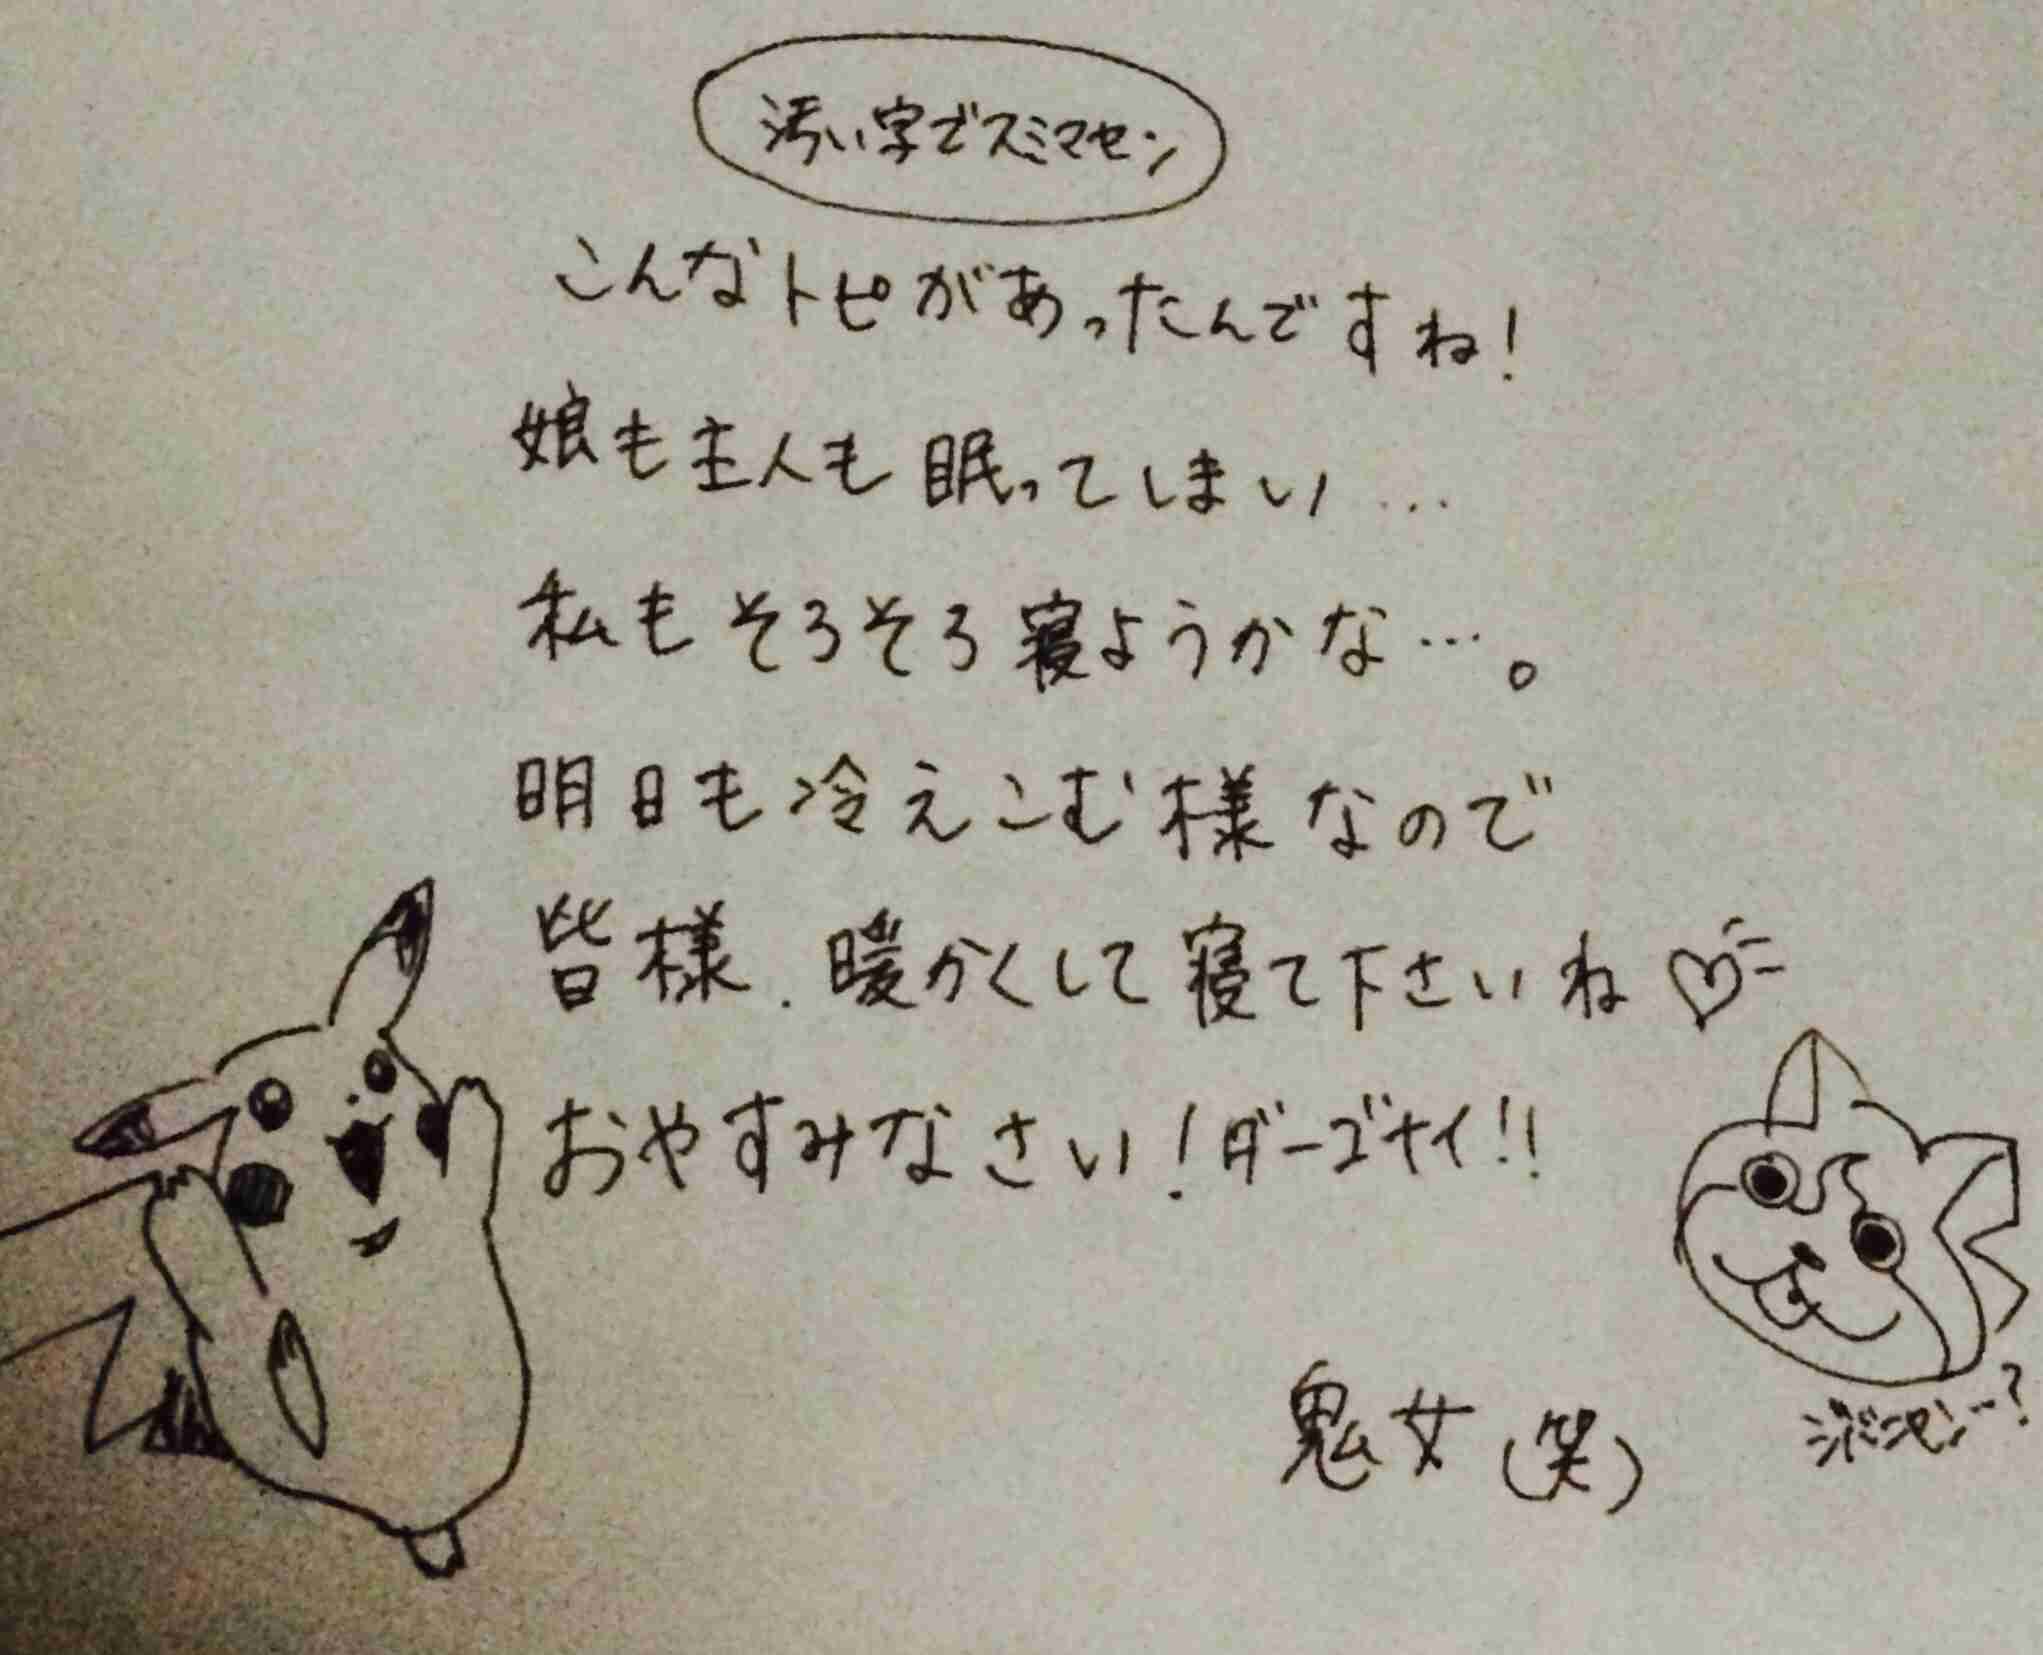 汚い字でスミマセン
こんなトピがあったんですね!
娘も主人も眠ってしまい…
私もそろそろ寝ようかな…。
明日も冷えこむ様なので
皆様、暖かくして寝て下さいね♡
おやすみなさい!ダーゴナイ!!
鬼女(笑)